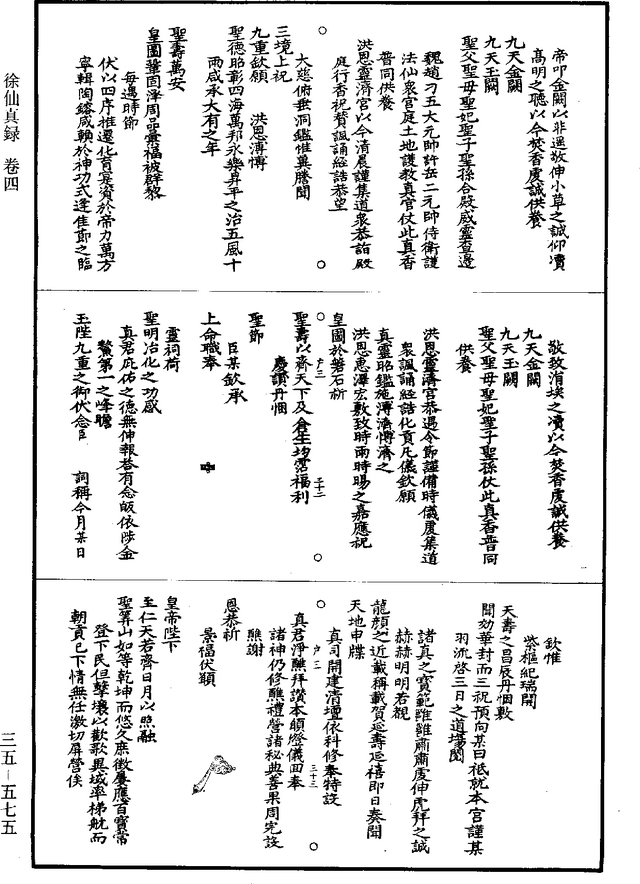 徐仙真録 卷四
三五—五七五
帝叩金闕以非遥敬伸小草之誠仰瀆
高明之聽以今焚香虔誠供養
九天金闕
九天玉闕
聖父聖母聖妃聖子聖孫合殿威靈查邊
魏趙刁五大元帥許岳二元帥侍衛護
法仙衆官庭土地護教真官仗此真香
普同供養
洪恩靈濟宮以今清晨謹集道衆恭詣殿
庭行香祝贊諷誦經誥恭望
大慈俯垂洞鑑惟冀騰聞
三境上祝
九重欽願 洪恩溥博
聖德昭彰四海萬邦永樂昇平之治五風十
雨咸承大有之年
聖壽萬安
皇圖鞏固澤周品彙福被群黎
每遇時節
伏以四序推遷化育寔資於帝力萬方
寧輯陶鎔咸賴於神功式逢佳節之臨
敬致涓埃之瀆以今焚香虔誠供養
九天金闕
九天玉闕
聖父聖母聖妃聖子聖孫仗此真香普同
供養
洪恩靈濟宮恭遇令節謹備時儀虔集道
衆諷誦經誥化貢凡儀欽願
真靈昭鑑施溥濟博濟之
洪恩惠澤宏敷致時雨時暘之嘉應祝
皇圖於磐石祈
聖壽以齊天下及倉生均霑福利
慶讚丹悃
聖節
臣某欽承
上命職奉
靈祠荷
聖明治化之功感
真君庇佑之德無伸報荅有念皈依陟金
鰲第一之峰瞻
玉陛九重之御伏念臣 詞稱今月某日
欽惟
紫樞紀瑞開
天壽之昌辰丹悃敷
聞効華封而三祝預向某日祇就本宮謹某
羽流啓三日之道場閱
諸真之寶範雝雝肅肅虔伸虎拜之誠
赫赫明明若覩
龍顔之近載稱載賀延壽延禧即日奏聞
天地申牒
真司開建清壇依科修奉特設
真君淨醮拜讃本願燈儀回奉
諸神仍修醮禮營諸秘典善果周完設
醮謝
恩恭祈
景福伏願
皇帝陛下
至仁天若齊日月以照融
聖筭山如等乾坤而悠久庶徵屢應百寶常
登下民但擊壤以歡歌異域率梯航而
朝貢已下情無任激切屏營俟